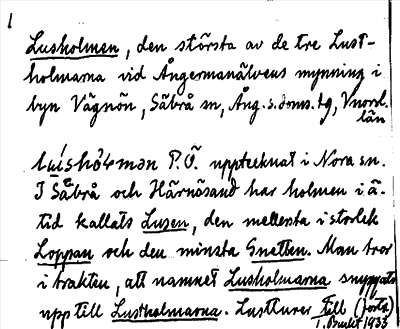 1
Lusholmen, den största av de tre Lust-
holmarna vid Ångermanälvens mynning i
byn Vägnön, Säbrå sn, Ång. s. doms. tg, Vnorrl.
län
P.Ö. upptecknat i Nora sn.
I Säbrå och Härnösand har holmen i ä.
tid kallats Lusen, den mellersta i storlek
Loppan och den minsta Gnetten. Man tror
i trakten, att namnet Lusholmarna snyggats
upp till Lustholmarna. Lustturer till (forts.)
1. 1933